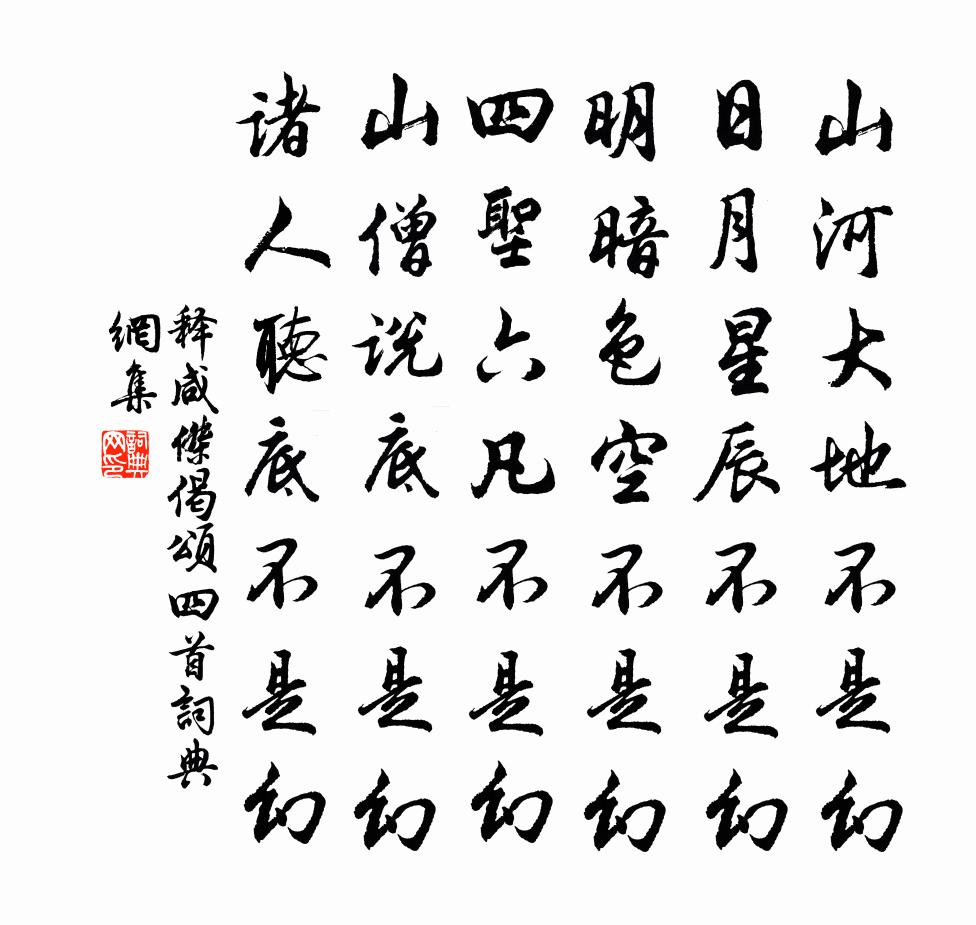 山河大地不是幻
日月星辰不是幻
明暗色空不是幻
四聖六凡不是幻
山僧说底不是幻
诸人聽底不是幻
释咸傑偈頌四首詞典
網集
詞典
网印